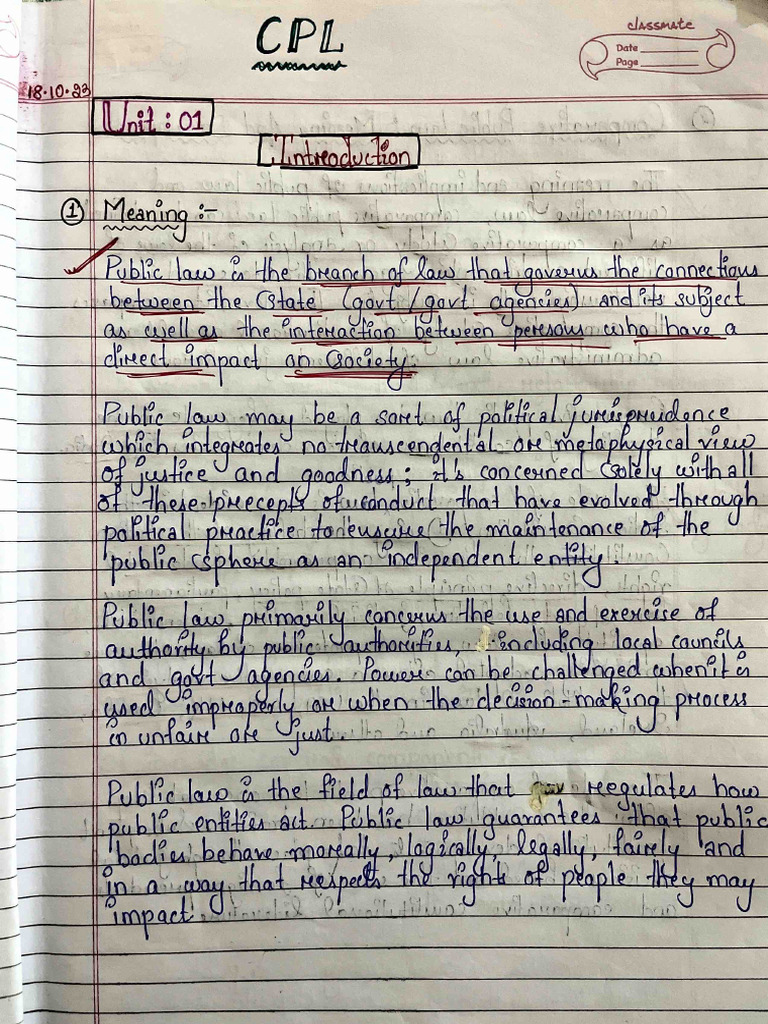 CPL
classmate
Date
Page
18.10.23
Unit : 01
Introduction
① Meaning :-
Public law is the branch of law that governs the connections
between the State (govt / govt agencies) and its subject
as well as the interaction between persons who have a
direct impact on Society.
Public law may be a sort of political jurisprudence
which integrates no transcendental or metaphysical view
of justice and goodness; it's concerned solely with all
of these precepts of conduct that have evolved through
political practice to ensure the maintenance of the
public sphere as an independent entity.
Public law primarily concerns the use and exercise of
authority by public authorities, including local councils
and govt agencies. Power can be challenged when it is
used improperly or when the decision-making process
is unfair or just.
Public law is the field of law that regulates how
public entities act. Public law guarantees that public
bodies behave morally, logically, legally, fairly and
in a way that respects the rights of people they may
impact